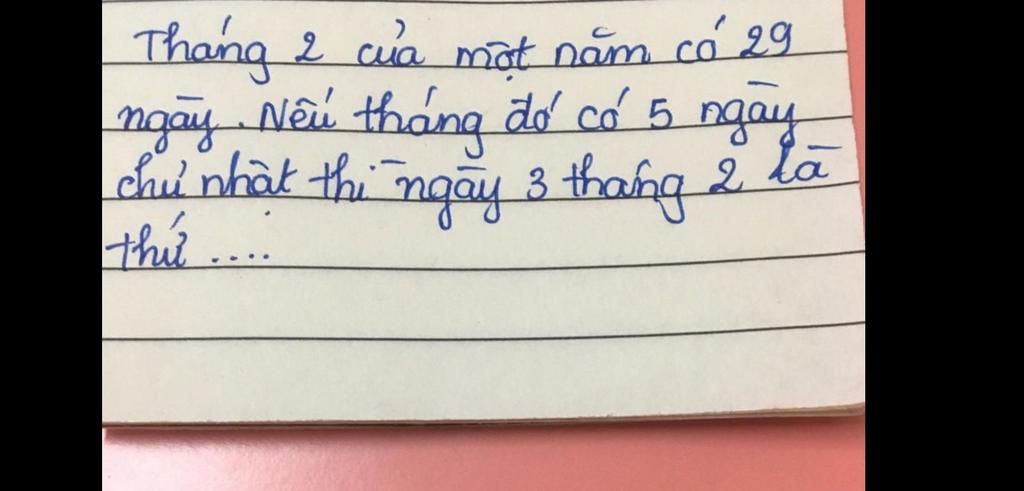 Tháng 2 của một năm có 29
ngày. Nếu tháng đó có 5 ngày
chủ nhật thì ngày 3 tháng 2 là
thứ ....